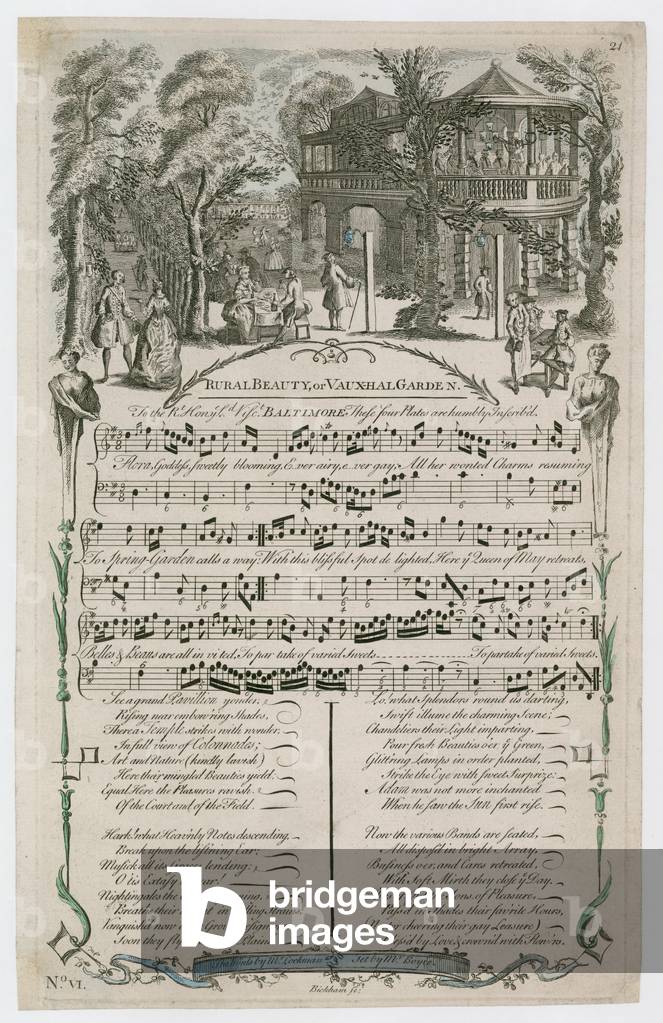 21
RURAL BEAUTY, or VAUXHAL GARDEN.
To the Rt. Honble. Ld. Visct. BALTIMORE, These four Plates are humbly Inscrib'd.
Flora, Goddess, sweetly blooming, E...ver airy, e...ver gay; All her wonted Charms resuming
To Spring-Garden calls a way: With this blissful Spot de lighted, Here ye Queen of May retreats,
Belles & Beaus are all in vi ted, To par take of varied Sweets To partake of varied Sweets.
See a grand Pavillion yonder,
Rising near embow'ring Shades,
There a Temple strikes with wonder,
In full view of Colonnades;
Art and Nature (kindly lavish)
Here their mingled Beauties yield;
Equal Here the Pleasures ravish
Of the Court and of the Field.
Hark! what Heav'nly Notes descending,
Break upon the list'ning Ear;
Musick all its lending;
O 'tis Extasy to hear!
Nightingales the
Breathe their in Strains;
Vanquish'd now
Soon they fly Plains.
Lo! what Splendors round us darting,
Swift illume the charming Scene;
Chandeliers their Light imparting,
Pour fresh Beauties o'er ye Green,
Glitt'ring Lamps in order planted,
Strike the Eye with sweet Surprize:
Adam was not more inchanted
When he saw the Sun first rise.
Now the various Bands are seated,
All dispos'd in bright Array,
Business o'er, and Cares retreated,
With Soft Mirth they close ye Day.
of Pleasure,
Pass'd in Shades their fav'rite Hours,
cheering their gay Leasure)
by Love & crown'd with Flow'rs.
The Words by Mr. Lockman
Set by Mr. Boyce
No. VI.
Bickham sc.
bridgeman
images